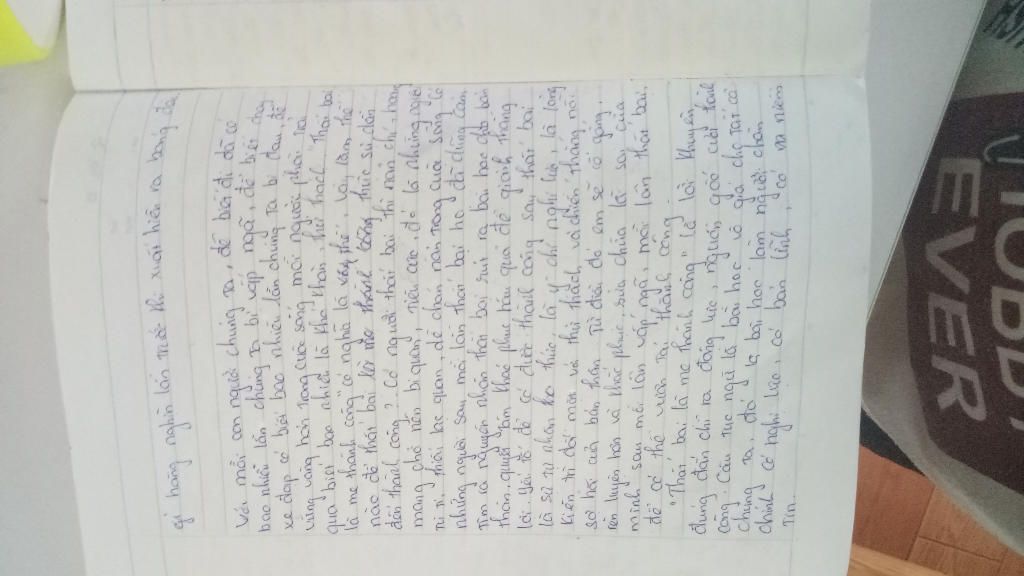 gì hoàng nghìn lần trước khi xuất hiện ra bóng đèn
Với mỗi con người chúng ta, để biết đi đã có
bao nhiêu lần chúng ta bị vấp ngã, để biết chạy
xe đạp có biết bao nhiêu lần chúng ta bị đau, để
vững vàng hơn trong cuộc sống mỗi người phải trải
qua biết bao nhiêu là khó khăn thử thách. "Thất bại
là mẹ thành công" có nghĩa là thế, vậy làm thế
nào để thất bại dẫn
đến thành công? Có người thất bại thì nản chí, hoang
mang, chở nên bi quan, tiêu cực, đó là những người
tự ti, thiếu lạc quan, dễ chán nản trong cuộc sống. Có
những người sau mỗi lần thất bại họ đã dũng cảm
tìm ra nguyên nhân thất bại, rút ra bài học cho bản
thân, quyết tâm khắc phục hậu quả để giành thắng
lợi. Yếu tố để có được thành công sau thất bại
là sự tự nhận thức, là ý chí nghị lực, là lòng
kiên trì đối mặt với thử thách, và chiến thắng nỗi
sợ hãi của bản thân. Từ đó, do em sẽ cố gắng,
rèn luyện hơn và khắc phục, sửa chữa lỗi sai của
mình sau mỗi lần vấp ngã, mỗi lần thất bại,
để có thể vươn tới thành công.
"Thất bại là mẹ thành công" là lời khuyên
đúng đắn chỉ ra động lực, nguồn gốc của thành
công. Câu tục ngữ là bài học vô giá cho tất cả
chúng ta, đó là bài học làm người chân
chính có nghị lực, có bản lĩnh, có niềm
tin.
HOBBY
EVER